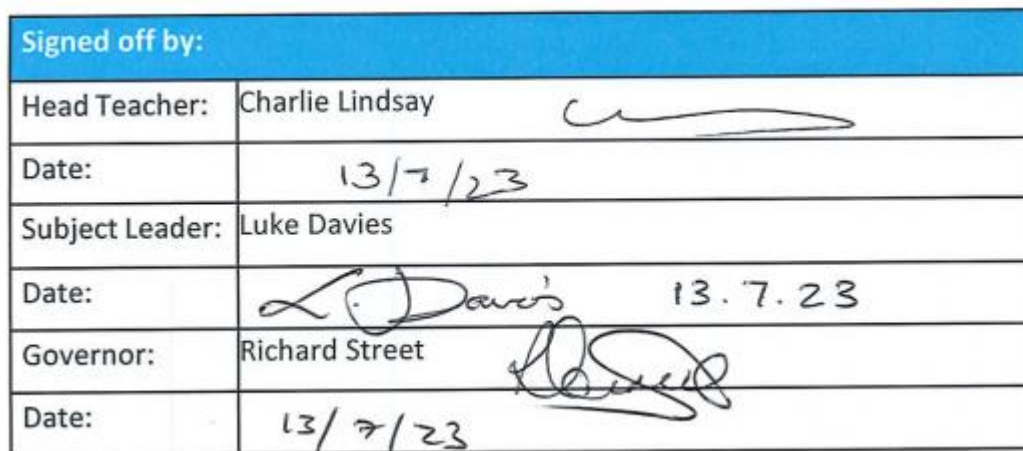 Signed off by:
Head Teacher: Charlie Lindsay
Date: 13/7/23
Subject Leader: Luke Davies
Date: L. Davies 13.7.23
Governor: Richard Street
Date: 13/7/23